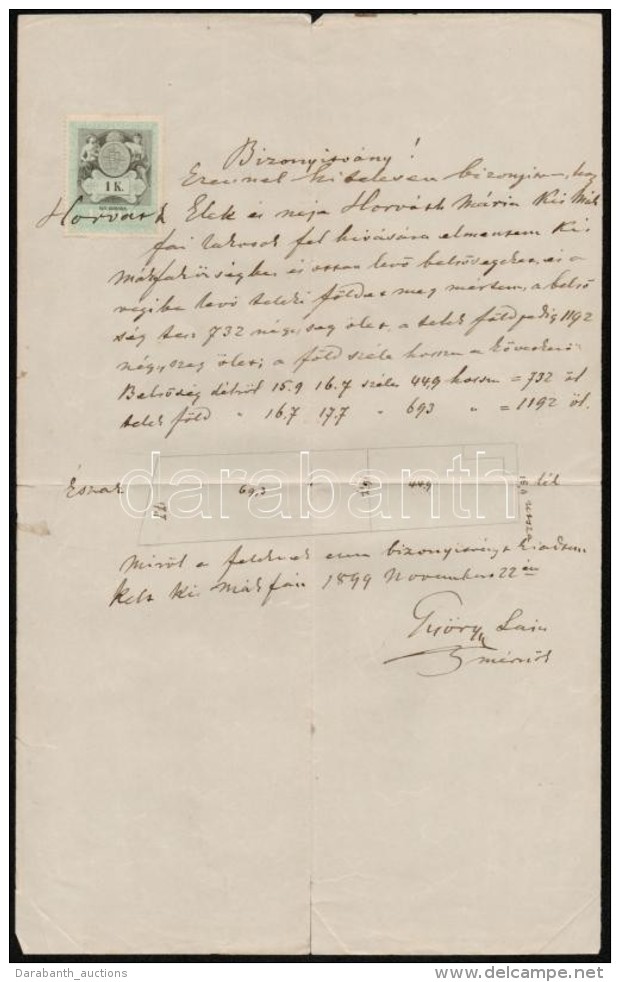 Bizonyitvány!
Ezennel hitelesen bizonyitom, hogy
1 K.
Horváth Elek és neje Horváth Mária Kis Mák
fai lakosok fel hivására elmentem Kis
Mákfa községbe és ottan levő belsőségeket, és a
végibe levő teleki földet meg mértem, a belső
ség tesz 732 négyszeg ölet, a telek föld pedig 1192
négyszeg ölet; a föld széle hossza a következő
Belsőség délről 15.9 16.7 széles 44.9 hossza = 732 öl
telek föld " 16.7 17.7 " 69.3 " = 1192 öl.
Észak 17.7 69.3 16.7 44.9 15.9 utcza dél
darabanth
Miről a feleknek ezen bizonyitványt kiadtam
Kelt Kis Mákfán 1899 November 22 én
Györy Lajos
mérnök
Darabanth_auctions
delcampe.net